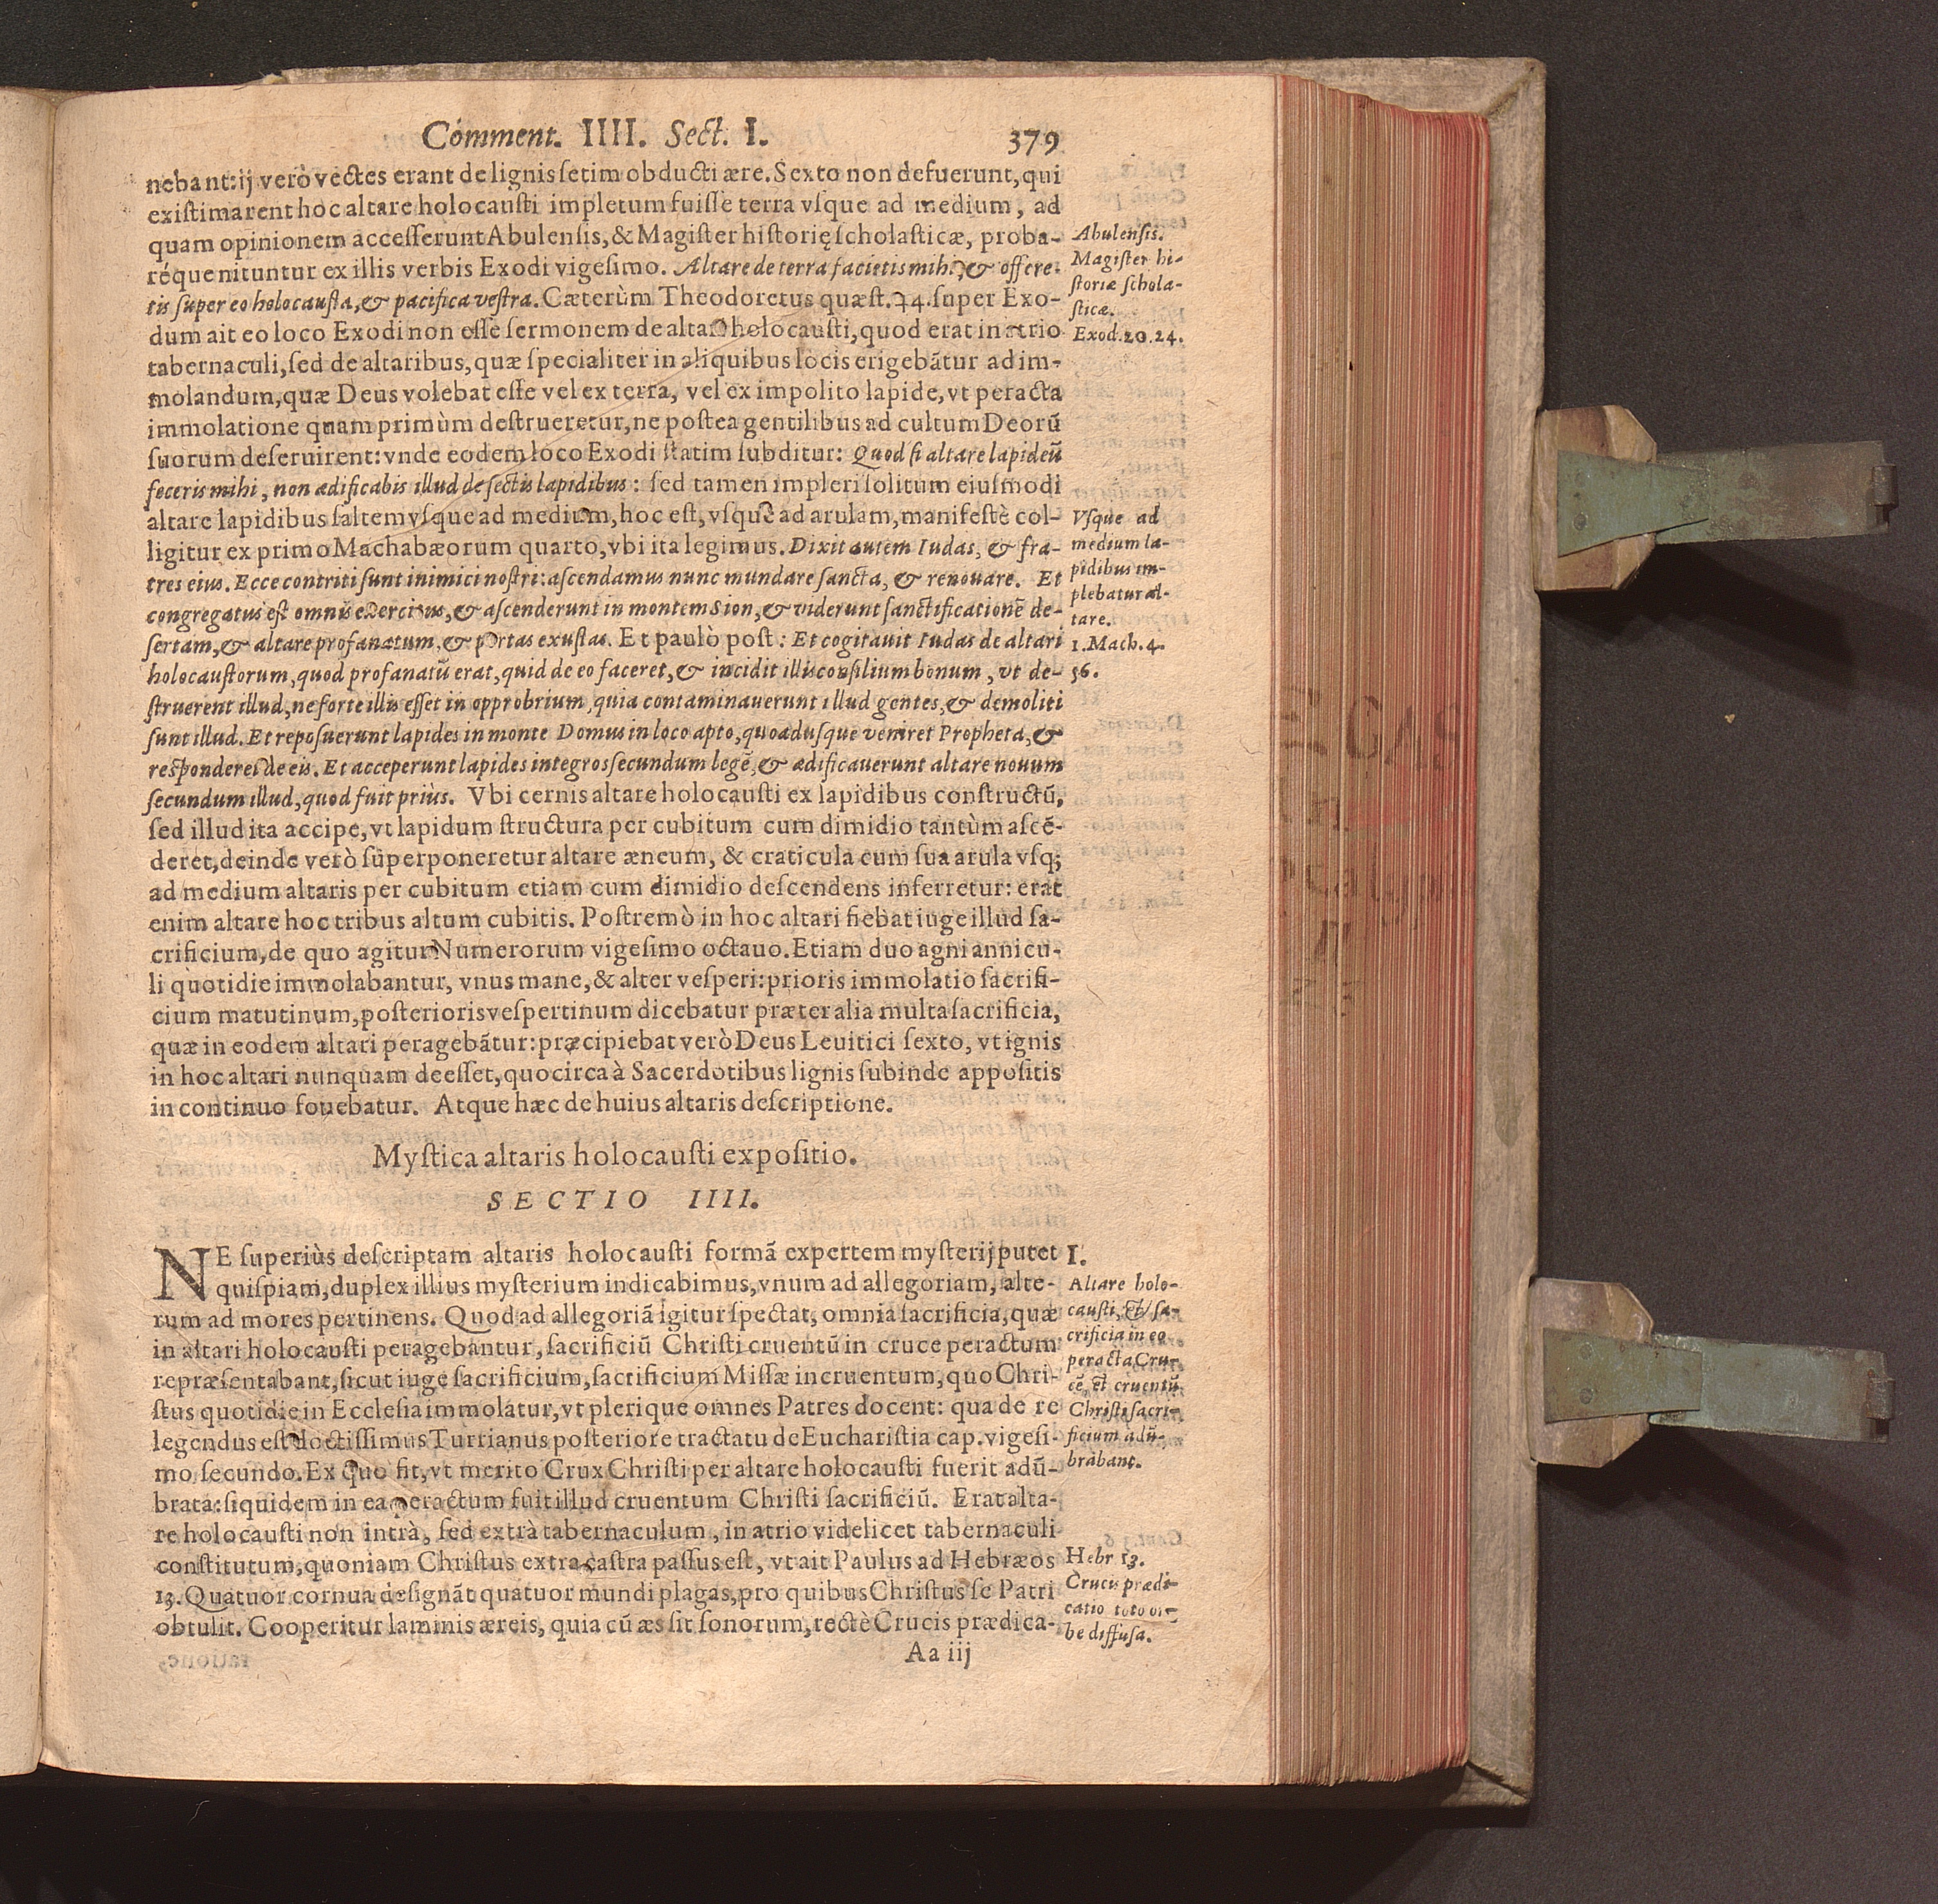 Comment. IIII. Sect. I. 379
nebant: ij verò vectes erant de lignis ſetim obducti ære. Sexto non defuerunt, qui
exiſtimarent hoc altare holocauſti impletum fuiſſe terra vſque ad medium, ad
quam opinionem acceſſerunt Abulenſis, & Magiſter hiſtorię ſcholaſticæ, proba-
réque nituntur ex illis verbis Exodi vigeſimo. Altare de terra facietis mihi, & offere-
tis ſuper eo holocauſta, & pacifica veſtra. Cæterùm Theodoretus quæſt. 44. ſuper Exo-
dum ait eo loco Exodi non eſſe ſermonem de altari holocauſti, quod erat in atrio
tabernaculi, ſed de altaribus, quæ ſpecialiter in aliquibus locis erigebãtur ad im-
molandum, quæ Deus volebat eſſe vel ex terra, vel ex impolito lapide, vt peracta
immolatione quam primùm deſtrueretur, ne poſtea gentilibus ad cultum Deorũ
ſuorum deſeruirent: vnde eodem loco Exodi ſtatim ſubditur: Quod ſi altare lapideũ
feceris mihi, non ædificabis illud de ſectis lapidibus: ſed tamen impleri ſolitum eiuſmodi
altare lapidibus ſaltem vſque ad medium, hoc eſt, vſque ad arulam, manifeſtè col-
ligitur ex primo Machabæorum quarto, vbi ita legimus. Dixit autem Iudas, & fra-
tres eius. Ecce contriti ſunt inimici noſtri: aſcendamus nunc mundare ſancta, & renouare. Et
congregatus eſt omnis exercitus, & aſcenderunt in montem Sion, & viderunt ſanctificationẽ de-
ſertam, & altare profanatum, & portas exuſtas. Et paulò poſt: Et cogitauit Iudas de altari
holocauſtorum, quod profanatũ erat, quid de eo faceret, & incidit illis conſilium bonum, vt de-
ſtruerent illud, ne forte illis eſſet in opprobrium, quia contaminauerunt illud gentes, & demoliti
ſunt illud. Et repoſuerunt lapides in monte Domus in loco apto, quoaduſque veniret Propheta, &
reſponderet de eis. Et acceperunt lapides integros ſecundum legẽ, & ædificauerunt altare nouum
ſecundum illud, quod fuit priùs. Vbi cernis altare holocauſti ex lapidibus conſtructũ,
ſed illud ita accipe, vt lapidum ſtructura per cubitum cum dimidio tantùm aſcẽ-
deret, deinde verò ſuperponeretur altare æneum, & craticula cum ſua arula vſq;
ad medium altaris per cubitum etiam cum dimidio deſcendens inferretur: erat
enim altare hoc tribus altum cubitis. Poſtremò in hoc altari fiebat iuge illud ſa-
crificium, de quo agitur Numerorum vigeſimo octauo. Etiam duo agni annicu-
li quotidie immolabantur, vnus mane, & alter veſperi: prioris immolatio ſacrifi-
cium matutinum, poſterioris veſpertinum dicebatur præter alia multa ſacrificia,
quæ in eodem altari peragebãtur: præcipiebat verò Deus Leuitici ſexto, vt ignis
in hoc altari nunquam deeſſet, quocirca à Sacerdotibus lignis ſubinde appoſitis
in continuo fouebatur. Atque hæc de huius altaris deſcriptione.
Abulenſis.
Magiſter hi-
ſtoriæ ſchola-
ſticæ.
Exod. 20. 24.
Vſque ad
medium la-
pidibus im-
plebatur al-
tare.
1. Mach. 4.
36.
Myſtica altaris holocauſti expoſitio.
SECTIO IIII.
NE ſuperiùs deſcriptam altaris holocauſti formã expertem myſterij putet
quiſpiam, duplex illius myſterium indicabimus, vnum ad allegoriam, alte-
rum ad mores pertinens. Quod ad allegoriã igitur ſpectat, omnia ſacrificia, quæ
in altari holocauſti peragebantur, ſacrificiũ Chriſti cruentũ in cruce peractum
repræſentabant, ſicut iuge ſacrificium, ſacrificium Miſſæ incruentum, quo Chri-
ſtus quotidie in Eccleſia immolatur, vt plerique omnes Patres docent: qua de re
legendus eſt doctiſſimus Turrianus poſteriore tractatu de Euchariſtia cap. vigeſi-
mo ſecundo. Ex quo fit, vt merito Crux Chriſti per altare holocauſti fuerit adũ-
brata: ſiquidem in ea peractum fuit illud cruentum Chriſti ſacrificiũ. Erat alta-
re holocauſti non intrà, ſed extrà tabernaculum, in atrio videlicet tabernaculi
conſtitutum, quoniam Chriſtus extra caſtra paſſus eſt, vt ait Paulus ad Hebræos
13. Quatuor cornua deſignãt quatuor mundi plagas, pro quibus Chriſtus ſe Patri
obtulit. Cooperitur laminis æreis, quia cũ æs ſit ſonorum, rectè Crucis prædica-
I.
Altare holo-
cauſti, & ſa-
crificia in eo
peracta Cru-
cẽ, & cruentũ
Chriſti ſacri-
ficium adũ-
brabant.
Hebr 13.
Crucis prædi-
catio toto or-
be diffuſa.
Aa iij